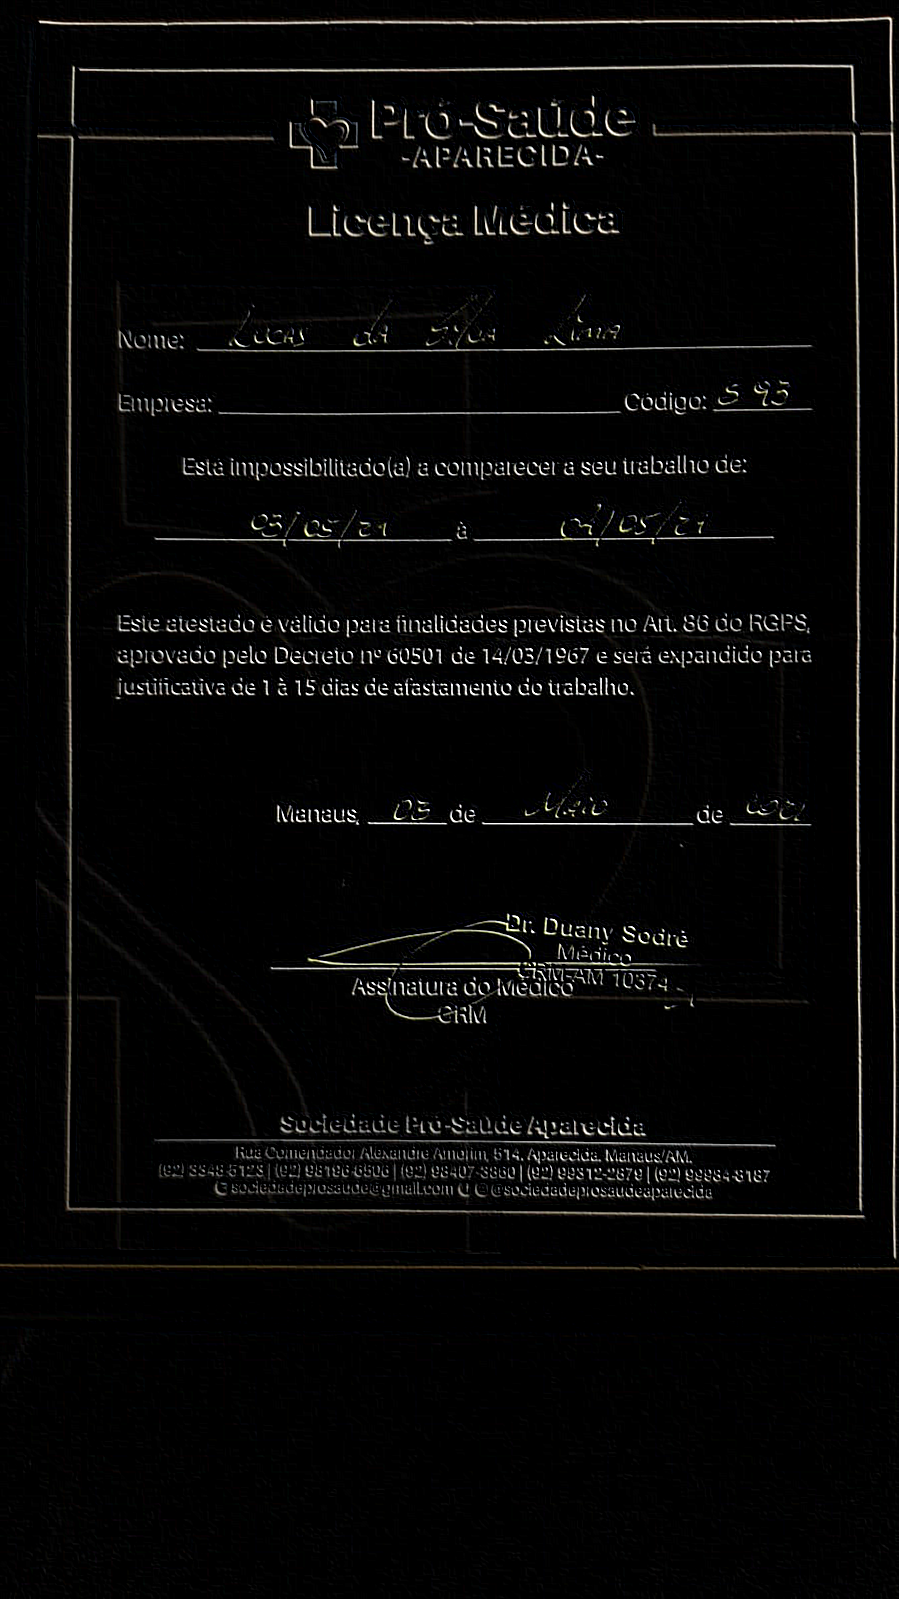 Pró-Saúde
-APARECIDA-
Licença Médica
Nome: Lucas da Silva Lima
Empresa: Código: S 93
Está impossibilitado(a) a comparecer a seu trabalho de:
03/05/21 à 04/05/21
Este atestado é válido para finalidades previstas no Art. 86 do RGPS,
aprovado pelo Decreto nº 60501 de 14/03/1967 e será expandido para
justificativa de 1 à 15 dias de afastamento do trabalho.
Manaus, 03 de Maio de 2021
Dr. Duany Sodré
Médico
CRM-AM 10374
Assinatura do Médico
CRM
Sociedade Pró-Saúde Aparecida
Rua Comendador Alexandre Amorim, 514. Aparecida. Manaus/AM.
(92) 3348-5123 | (92) 98196-6506 | (92) 98407-3860 | (92) 99312-2879 | (92) 99984-8187
sociedadeprosaude@gmail.com @sociedadeprosaudeaparecida